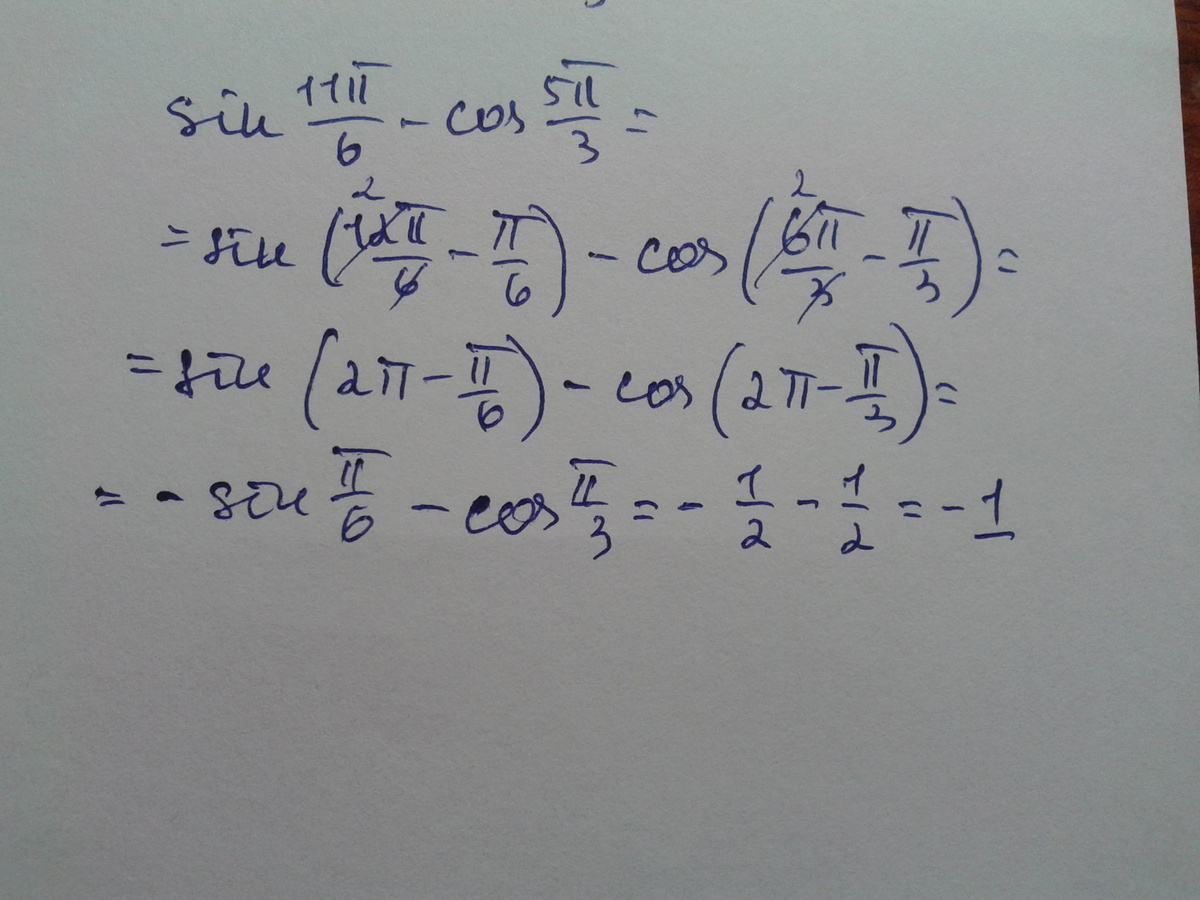 sin 11π/6 - cos 5π/3 =
= sin (12π/6 - π/6) - cos (6π/3 - π/3) =
= sin (2π - π/6) - cos (2π - π/3) =
= - sin π/6 - cos π/3 = - 1/2 - 1/2 = - 1